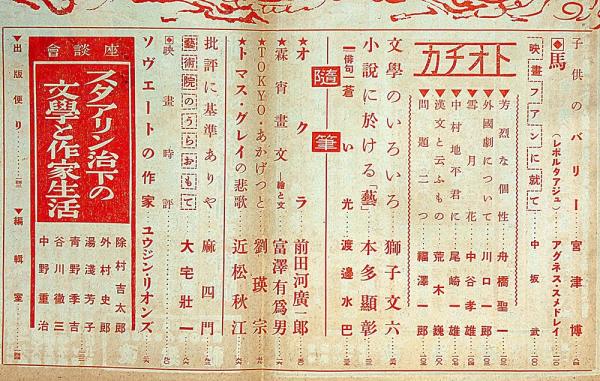 子供のパリー 宮津博
◆馬(レポルタアジュ) アグネス・スメドレイ
映畫フアンに就て 中坂武
トオチカ
芳烈な個性 舟橋聖一
外國劇について 川口一郎
雪月花 中谷孝雄
中村地平君に 尾崎一雄
漢文と云ふもの 荒木巍
問題二つ 福澤一郎
文學のいろいろ 獅子文六
小說に於ける「藝」 本多顯彰
―俳句―蒼い光 渡邊水巴
隨筆
★オクラ 前田河廣一郎
★霖宵畫文―繪と文 富澤有爲男
★TOKYO・あかげつと 劉瑛宗
★トマス・グレイの悲歌 近松秋江
批評に基準ありや 麻四門
藝術院のうらおもて 大宅壯一
◆映畫時評
ソヴェートの作家 ユウジン・リオンズ
座談會
スタアリン治下の
文學と作家生活
除村吉太郎
外村史郎
湯淺芳子
靑野季吉
谷川徹三
中野重治
▼出版便り
▼編輯室